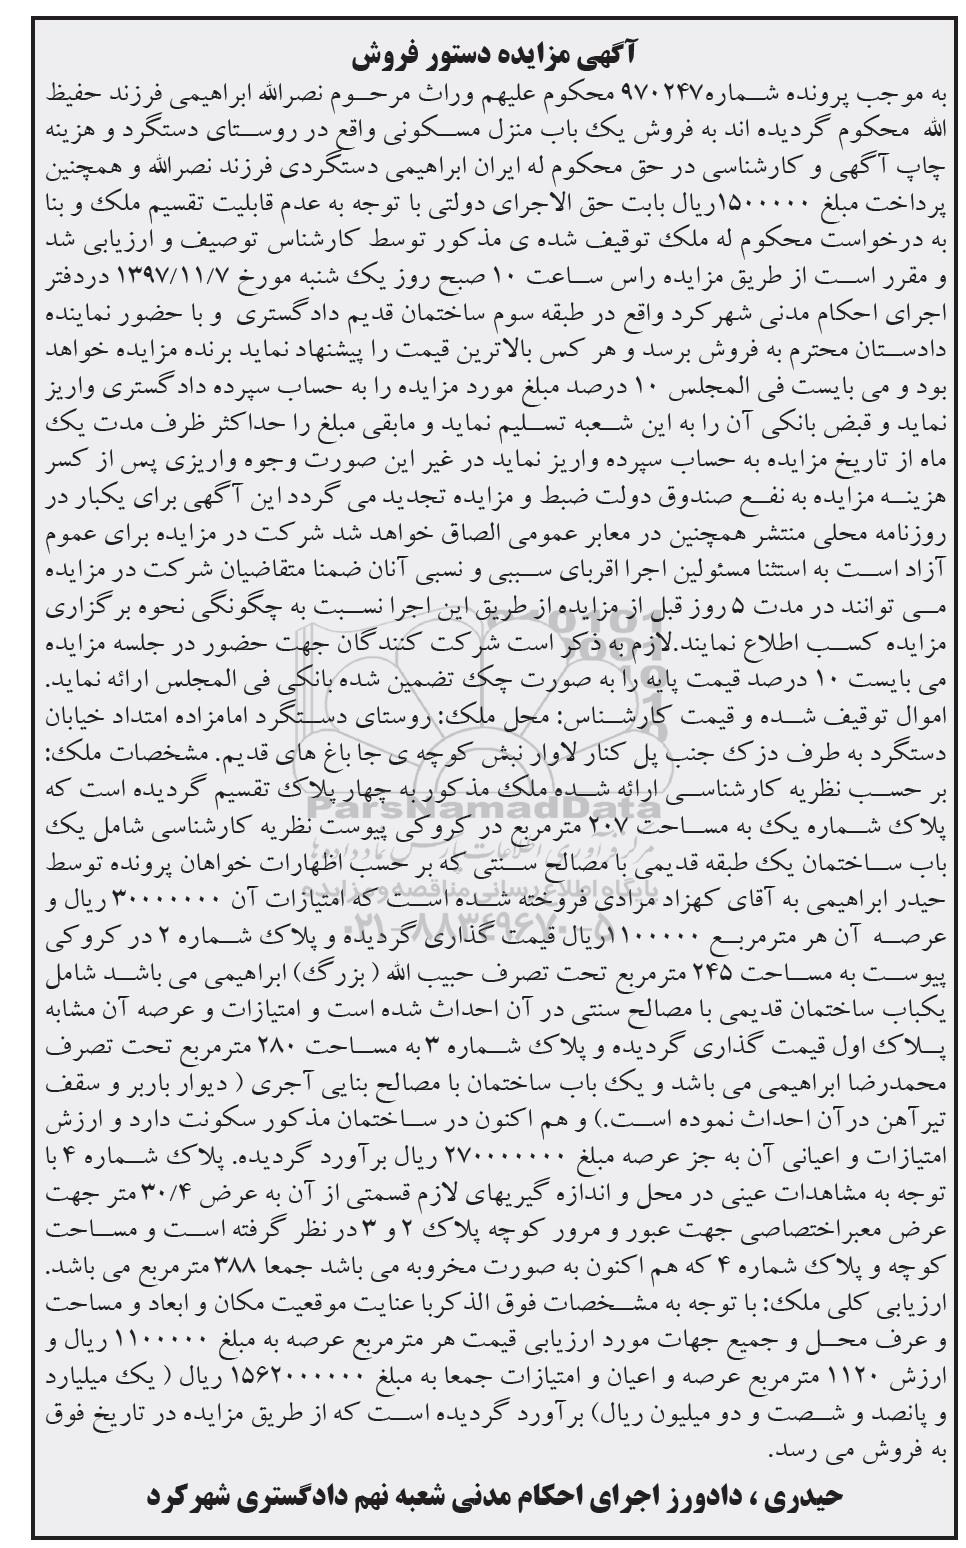 آگهی مزایده دستور فروش
به موجب پرونده شماره۹۷۰۲۴۷ محکوم علیهم وراث مرحوم نصرالله ابراهیمی فرزند حفیظ
الله محکوم گردیده اند به فروش یک باب منزل مسکونی واقع در روستای دستگرد و هزینه
چاپ آگهی و کارشناسی در حق محکوم له ایران ابراهیمی دستگردی فرزند نصرالله و همچنین
پرداخت مبلغ ۱۵۰۰۰۰۰ریال بابت حق الاجرای دولتی با توجه به عدم قابلیت تقسیم ملک و بنا
به درخواست محکوم له ملک توقیف شده ی مذکور توسط کارشناس توصیف و ارزیابی شد
و مقرر است از طریق مزایده راس ساعت ۱۰ صبح روز یک شنبه مورخ ۱۳۹۷/۱۱/۷ دردفتر
اجرای احکام مدنی شهرکرد واقع در طبقه سوم ساختمان قدیم دادگستری و با حضور نماینده
دادستان محترم به فروش برسد و هر کس بالاترین قیمت را پیشنهاد نماید برنده مزایده خواهد
بود و می بایست فی المجلس ۱۰ درصد مبلغ مورد مزایده را به حساب سپرده دادگستری واریز
نماید و قبض بانکی آن را به این شعبه تسلیم نماید و مابقی مبلغ را حداکثر ظرف مدت یک
ماه از تاریخ مزایده به حساب سپرده واریز نماید در غیر این صورت وجوه واریزی پس از کسر
هزینه مزایده به نفع صندوق دولت ضبط و مزایده تجدید می گردد این آگهی برای یکبار در
روزنامه محلی منتشر همچنین در معابر عمومی الصاق خواهد شد شرکت در مزایده برای عموم
آزاد است به استثنا مسئولین اجرا اقربای سببی و نسبی آنان ضمنا متقاضیان شرکت در مزایده
می توانند در مدت ۵ روز قبل از مزایده از طریق این اجرا نسبت به چگونگی نحوه برگزاری
مزایده کسب اطلاع نمایند.لازم به ذکر است شرکت کنندگان جهت حضور در جلسه مزایده
می بایست ۱۰ درصد قیمت پایه را به صورت چک تضمین شده بانکی فی المجلس ارائه نماید.
اموال توقیف شده و قیمت کارشناس: محل ملک: روستای دستگرد امامزاده امتداد خیابان
دستگرد به طرف دزک جنب پل کنار لاوار نبش کوچه ی جا باغ های قدیم. مشخصات ملک:
بر حسب نظریه کارشناسی ارائه شده ملک مذکور به چهار پلاک تقسیم گردیده است که
ParsNamadData
پلاک شماره یک به مساحت ۲۰۷ مترمربع در کروکی پیوست نظریه کارشناسی شامل یک
باب ساختمان یک طبقه قدیمی با مصالح سنتی که بر حسب اظهارات خواهان پرونده توسط
پایگاه اطلاع رسانی مناقصه و مزایده
حیدر ابراهیمی به آقای کهزاد مرادی فروخته شده است که امتیازات آن ۳۰۰۰۰۰۰۰ ریال و
۰۲۱-۸۸۳۴۹۶۷۰-۵
عرصه آن هر مترمربع ۱۱۰۰۰۰۰ریال قیمت گذاری گردیده و پلاک شماره ۲ در کروکی
پیوست به مساحت ۲۴۵ مترمربع تحت تصرف حبیب الله ( بزرگ) ابراهیمی می باشد شامل
یکباب ساختمان قدیمی با مصالح سنتی در آن احداث شده است و امتیازات و عرصه آن مشابه
پلاک اول قیمت گذاری گردیده و پلاک شماره ۳ به مساحت ۲۸۰ مترمربع تحت تصرف
محمدرضا ابراهیمی می باشد و یک باب ساختمان با مصالح بنایی آجری ( دیوار باربر و سقف
تیرآهن درآن احداث نموده است.) و هم اکنون در ساختمان مذکور سکونت دارد و ارزش
امتیازات و اعیانی آن به جز عرصه مبلغ ۲۷۰۰۰۰۰۰۰ ریال برآورد گردیده. پلاک شماره ۴ با
توجه به مشاهدات عینی در محل و اندازه گیریهای لازم قسمتی از آن به عرض ۳۰/۴ متر جهت
عرض معبراختصاصی جهت عبور و مرور کوچه پلاک ۲ و ۳ در نظر گرفته است و مساحت
کوچه و پلاک شماره ۴ که هم اکنون به صورت مخروبه می باشد جمعا ۳۸۸ مترمربع می باشد.
ارزیابی کلی ملک: با توجه به مشخصات فوق الذکربا عنایت موقعیت مکان و ابعاد و مساحت
و عرف محل و جمیع جهات مورد ارزیابی قیمت هر مترمربع عرصه به مبلغ ۱۱۰۰۰۰۰ ریال و
ارزش ۱۱۲۰ مترمربع عرصه و اعیان و امتیازات جمعا به مبلغ ۱۵۶۲۰۰۰۰۰۰ ریال ( یک میلیارد
و پانصد و شصت و دو میلیون ریال) برآورد گردیده است که از طریق مزایده در تاریخ فوق
به فروش می رسد.
حیدری ، دادورز اجرای احکام مدنی شعبه نهم دادگستری شهرکرد